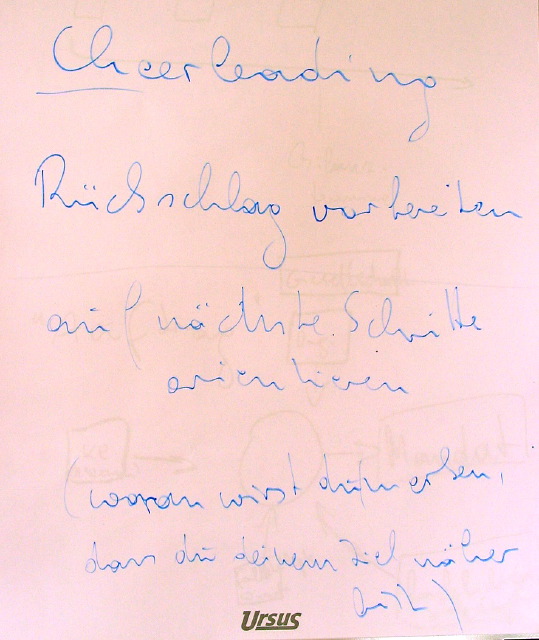 Cheerleading
Rückschlag vorbereiten
auf nächste Schritte
orientieren
(woran wirst du merken,
dass du deinem Ziel näher
bist)
Ursus